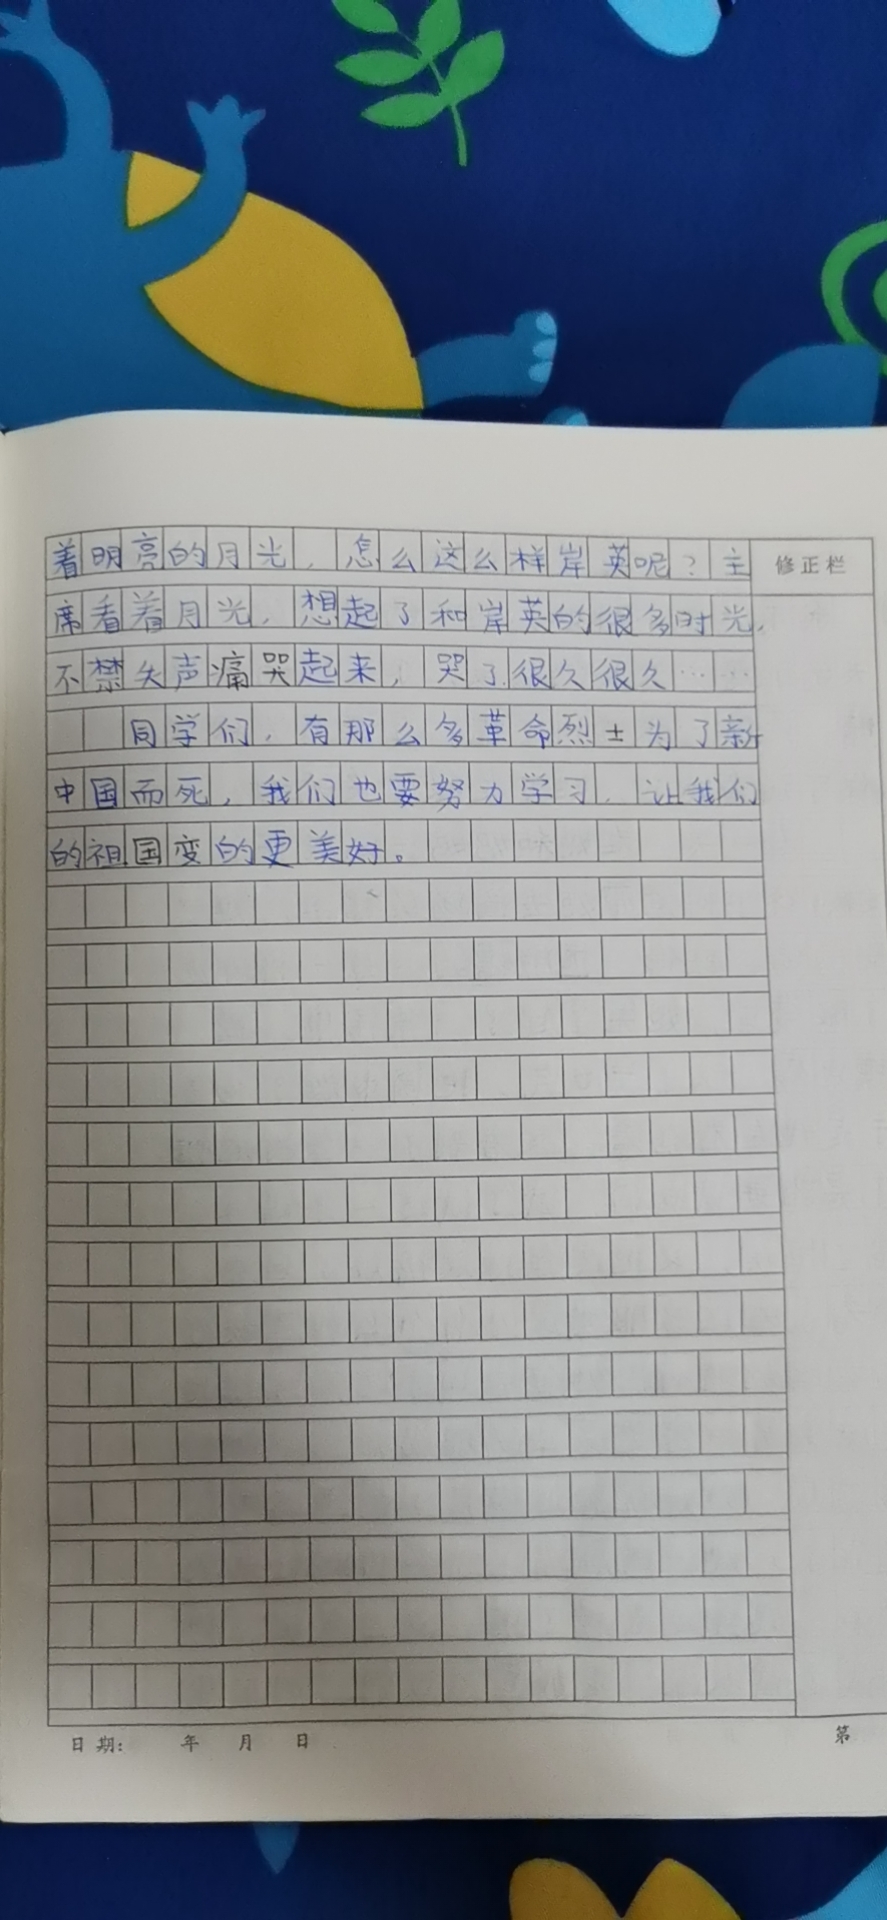 着明亮的月光，怎么这么样岸英呢？主
修正栏
席看着月光，想起了和岸英的很多时光，
不禁失声痛哭起来，哭了很久很久……
同学们，有那么多革命烈士为了新
中国而死，我们也要努力学习，让我们
的祖国变的更美好。
日期： 年 月 日
第